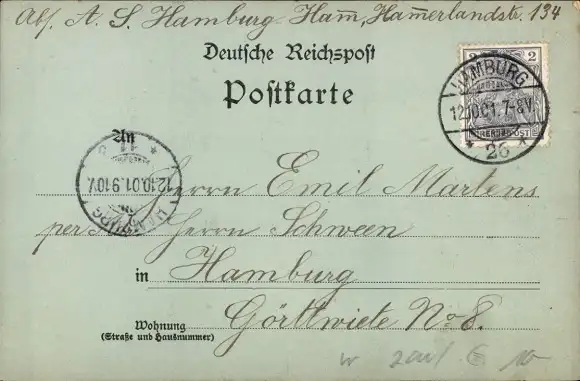 Abs. A. S. Hamburg-Ham̅, Ham̅erlandstr. 134
Deutsche Reichspost
Postkarte
2 2
REICHSPOST
HAMBURG
12.10.01.7-8V.
* 26 *
An
12.10.01.9.10V.
HAMBURG
Herrn Emil Martens
per Herrn Schween
in Hamburg
Wohnung Görttwiete No 8.
(Straße und Hausnummer)